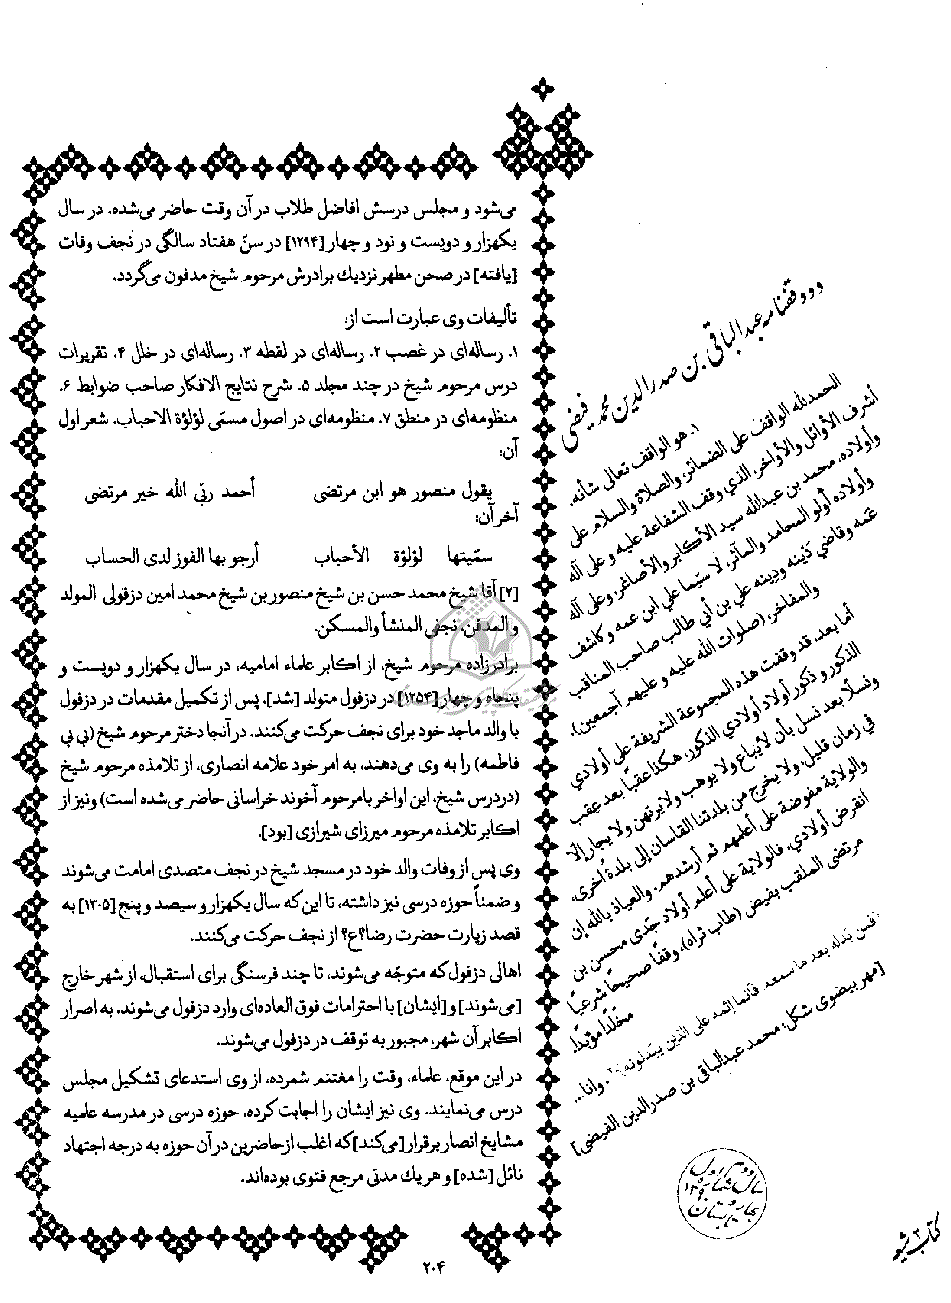 می‌شود و مجلس درسش افاضل طلاب در آن وقت حاضر می‌شده. در سال
یکهزار و دویست و نود و چهار [۱۲۹۴] در سنّ هفتاد سالگی در نجف وفات
[یافته] در صحن مطهر نزدیك برادرش مرحوم شیخ مدفون می‌گردد.
تألیفات وی عبارت است از:
۱. رساله‌ای در غصب ۲. رساله‌ای در لقطه ۳. رساله‌ای در خلل ۴. تقریرات
درس مرحوم شیخ در چند مجلد ۵. شرح نتایج الافکار صاحب ضوابط ۶.
منظومه‌ای در منطق ۷. منظومه‌ای در اصول مسمّی لؤلؤة الاحباب. شعر اول
آن:
یقول منصور هو ابن مرتضی أحمد ربّی الله خیر مرتضی
آخر آن:
سمّیتها لؤلؤة الأحباب أرجو بها الفوز لدی الحساب
[۷] آقا شیخ محمد حسن بن شیخ منصور بن شیخ محمد امین دزفولی المولد
و المدفن، نجفی المنشأ والمسکن.
برادرزاده مرحوم شیخ، از اکابر علماء امامیه، در سال یکهزار و دویست و
پنجاه و چهار [۱۲۵۴] در دزفول متولد [شد]، پس از تکمیل مقدمات در دزفول
با والد ماجد خود برای نجف حرکت می‌کنند. در آنجا دختر مرحوم شیخ (بی بی
فاطمه) را به وی می‌دهند، به امر خود علامه انصاری، از تلامذه مرحوم شیخ
(در درس شیخ، این اواخر با مرحوم آخوند خراسانی حاضر می‌شده است) ونیز از
اکابر تلامذه مرحوم میرزای شیرازی [بود].
وی پس از وفات والد خود در مسجد شیخ در نجف متصدی امامت می‌شوند
و ضمناً حوزه درسی نیز داشته، تا این که سال یکهزار و سیصد و پنج [۱۳۰۵] به
قصد زیارت حضرت رضا؟ع؟ از نجف حرکت می‌کنند.
اهالی دزفول که متوجّه می‌شوند، تا چند فرسنگی برای استقبال، از شهر خارج
[می‌شوند] و [ایشان] با احترامات فوق العاده‌ای وارد دزفول می‌شوند، به اصرار
اکابر آن شهر، مجبور به توقف در دزفول می‌شوند.
در این موقع، علماء، وقت را مغتنم شمرده، از وی استدعای تشکیل مجلس
درس می‌نمایند. وی نیز ایشان را اجابت کرده، حوزه درسی در مدرسه علمیه
مشایخ انصار برقرار [می‌کند] که اغلب از حاضرین در آن حوزه به درجه اجتهاد
نائل [شده] و هر یك مدتی مرجع فتوی بوده‌اند.
۲۰۴
وقفنامه عبدالباقی بن صدرالدین محمد فیضی
۱. هو الواقف تعالی شأنه.
الحمدلله الواقف علی الضمائر والصلاة والسلام علی
أشرف الأوائل والأواخر، الذي وقف الشفاعة عليه و علی آله
وأولاده، محمد بن عبدالله سيد الأكابر والأصاغر، وعلی آله
وأولاده أولو المحامد والمآثر، لا سيّما علي ابن عمه و كاشف
غمّه وقاضي دينه علي بن أبي طالب صاحب المناقب
والمفاخر، (صلوات الله عليه و عليهم أجمعين).
أما بعد، قد وقفت هذه المجموعة الشريفة علی أولادي
الذكور و ذكور أولاد أولادي الذكور، هكذا عقباً بعد عقب
ونسلاً بعد نسل بأن لا يباع ولا يوهب ولا يرتهن ولا يجار إلا
في زمان قليل، ولا يخرج من بلدتنا القاسان إلی بلدة أخری،
والولاية مفوضة علی أعلمهم ثم أرشدهم. والعياذ بالله إن
انقرض أولادي، فالولاية علی أعلم أولاد جدّی محسن بن
مرتضی الملقب بفيض (طاب ثراه)، وقفاً صحيحاً شرعياً
مخلّداً مؤبداً.
﴿فمن بدّله بعد ما سمعه فإنما إثمه علی الذين يبدلونه﴾. وانا...
[مهر بیضوی شکل: محمد عبدالباقی بن صدرالدین الفیضی]
سال دوم
شماره اول
بهار و تابستان
۱۳۹۰
کتاب شیعه ۳